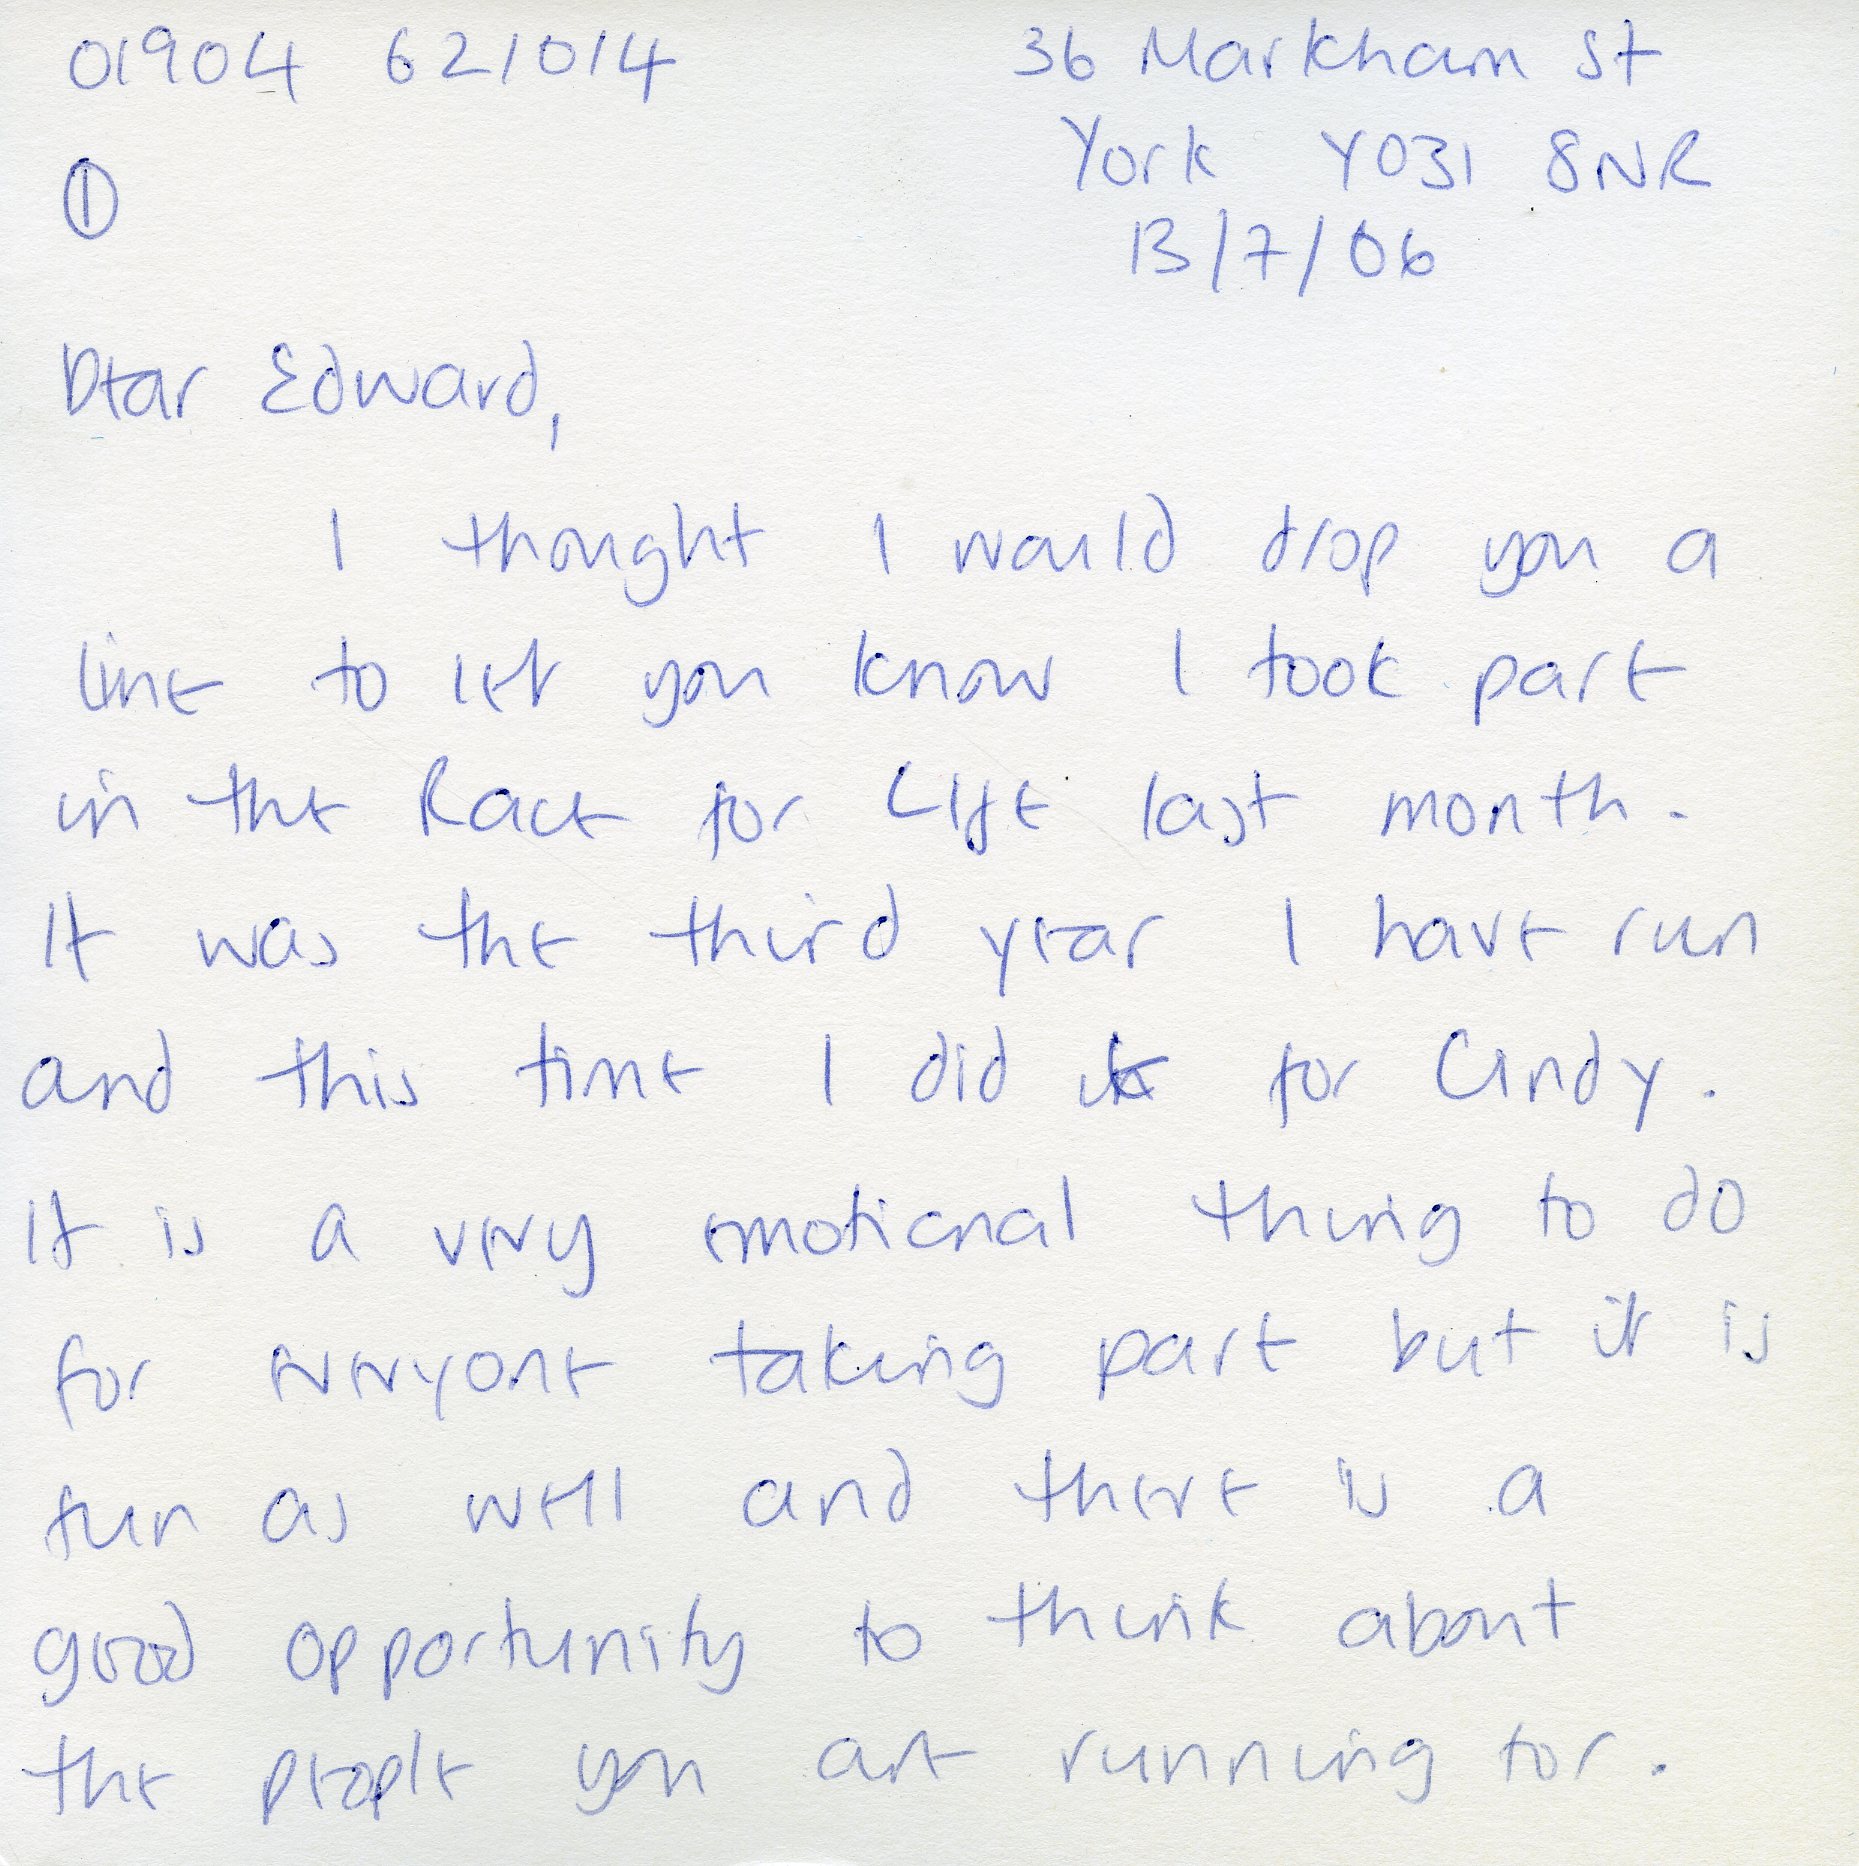 01904 621014
36 Markham St
York YO31 8NR
13/7/06
①
Dear Edward,
I thought I would drop you a
line to let you know I took part
in the Race for Life last month.
It was the third year I have run
and this time I did it for Cindy.
It is a very emotional thing to do
for everyone taking part but it is
fun as well and there is a
good opportunity to think about
the people you are running for.